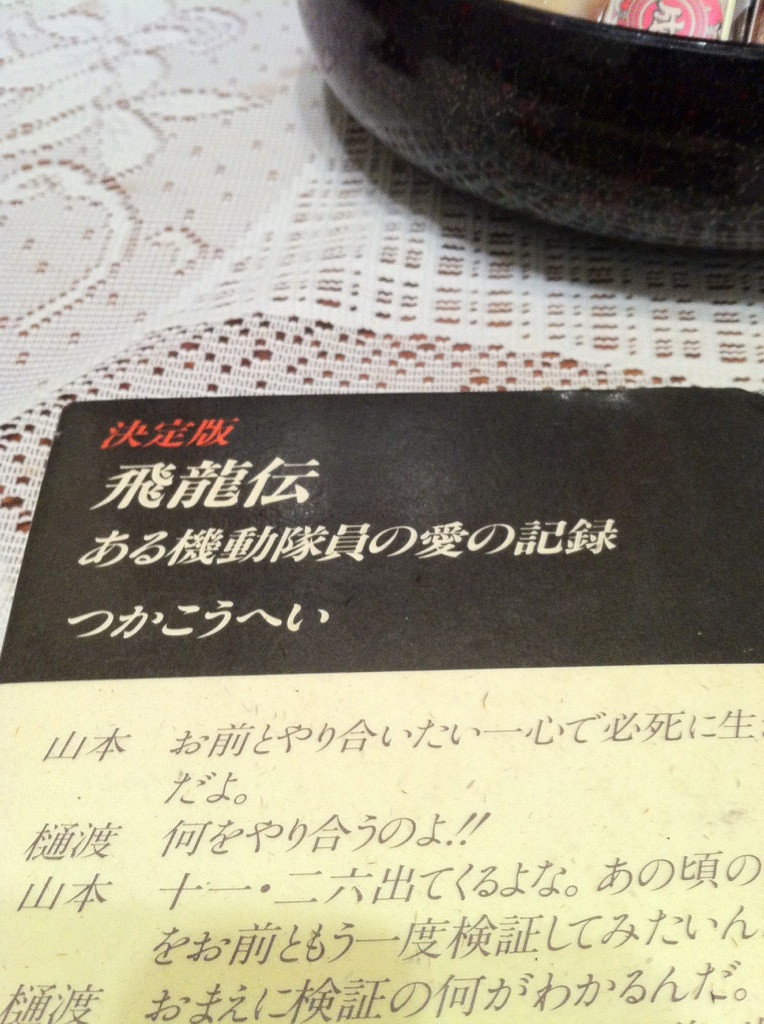 決定版
飛龍伝
ある機動隊員の愛の記録
つかこうへい
山本 お前とやり合いたい一心で必死に生
だよ。
樋渡 何をやり合うのよ!!
山本 十一・二六出てくるよな。あの頃の
をお前ともう一度検証してみたいん
樋渡 おまえに検証の何がわかるんだ。